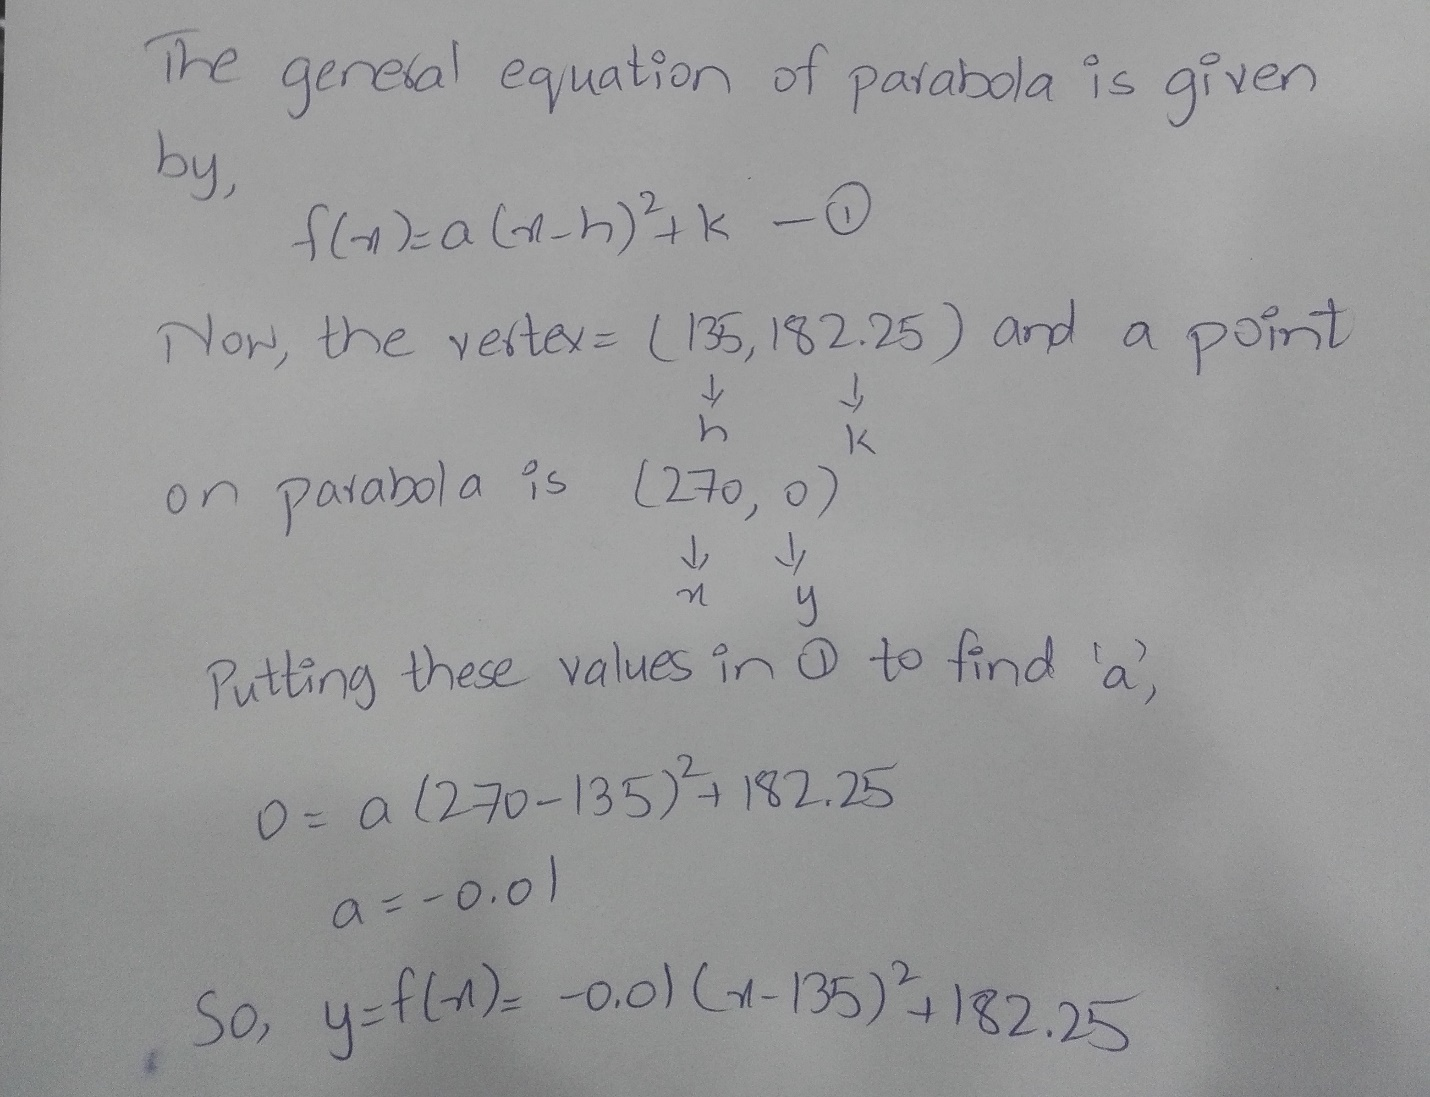 The general equation of parabola is given
by,
f(x)=a(x-h)²+k -①
Now, the vertex= (135, 182.25) and a point
↓ ↓
h k
on parabola is (270, 0)
↓ ↓
x y
Putting these values in ① to find 'a',
0 = a (270-135)²+ 182.25
a = -0.01
So, y=f(x)= -0.01 (x-135)²+182.25